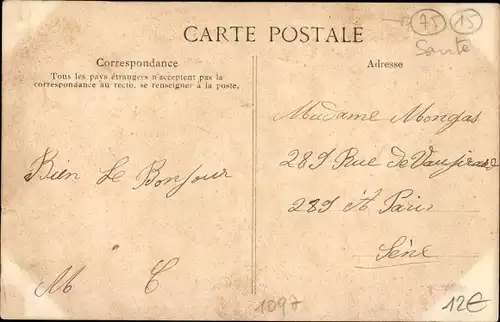 CARTE POSTALE
75
15
Sante
Correspondance
Tous les pays étrangers n'acceptent pas la
correspondance au recto, se renseigner à la poste.
Adresse
Madame Mongas
289 Rue de Vaugirard
289 A Paris
Séne
Bien Le Bonjour
M C
1097
12€